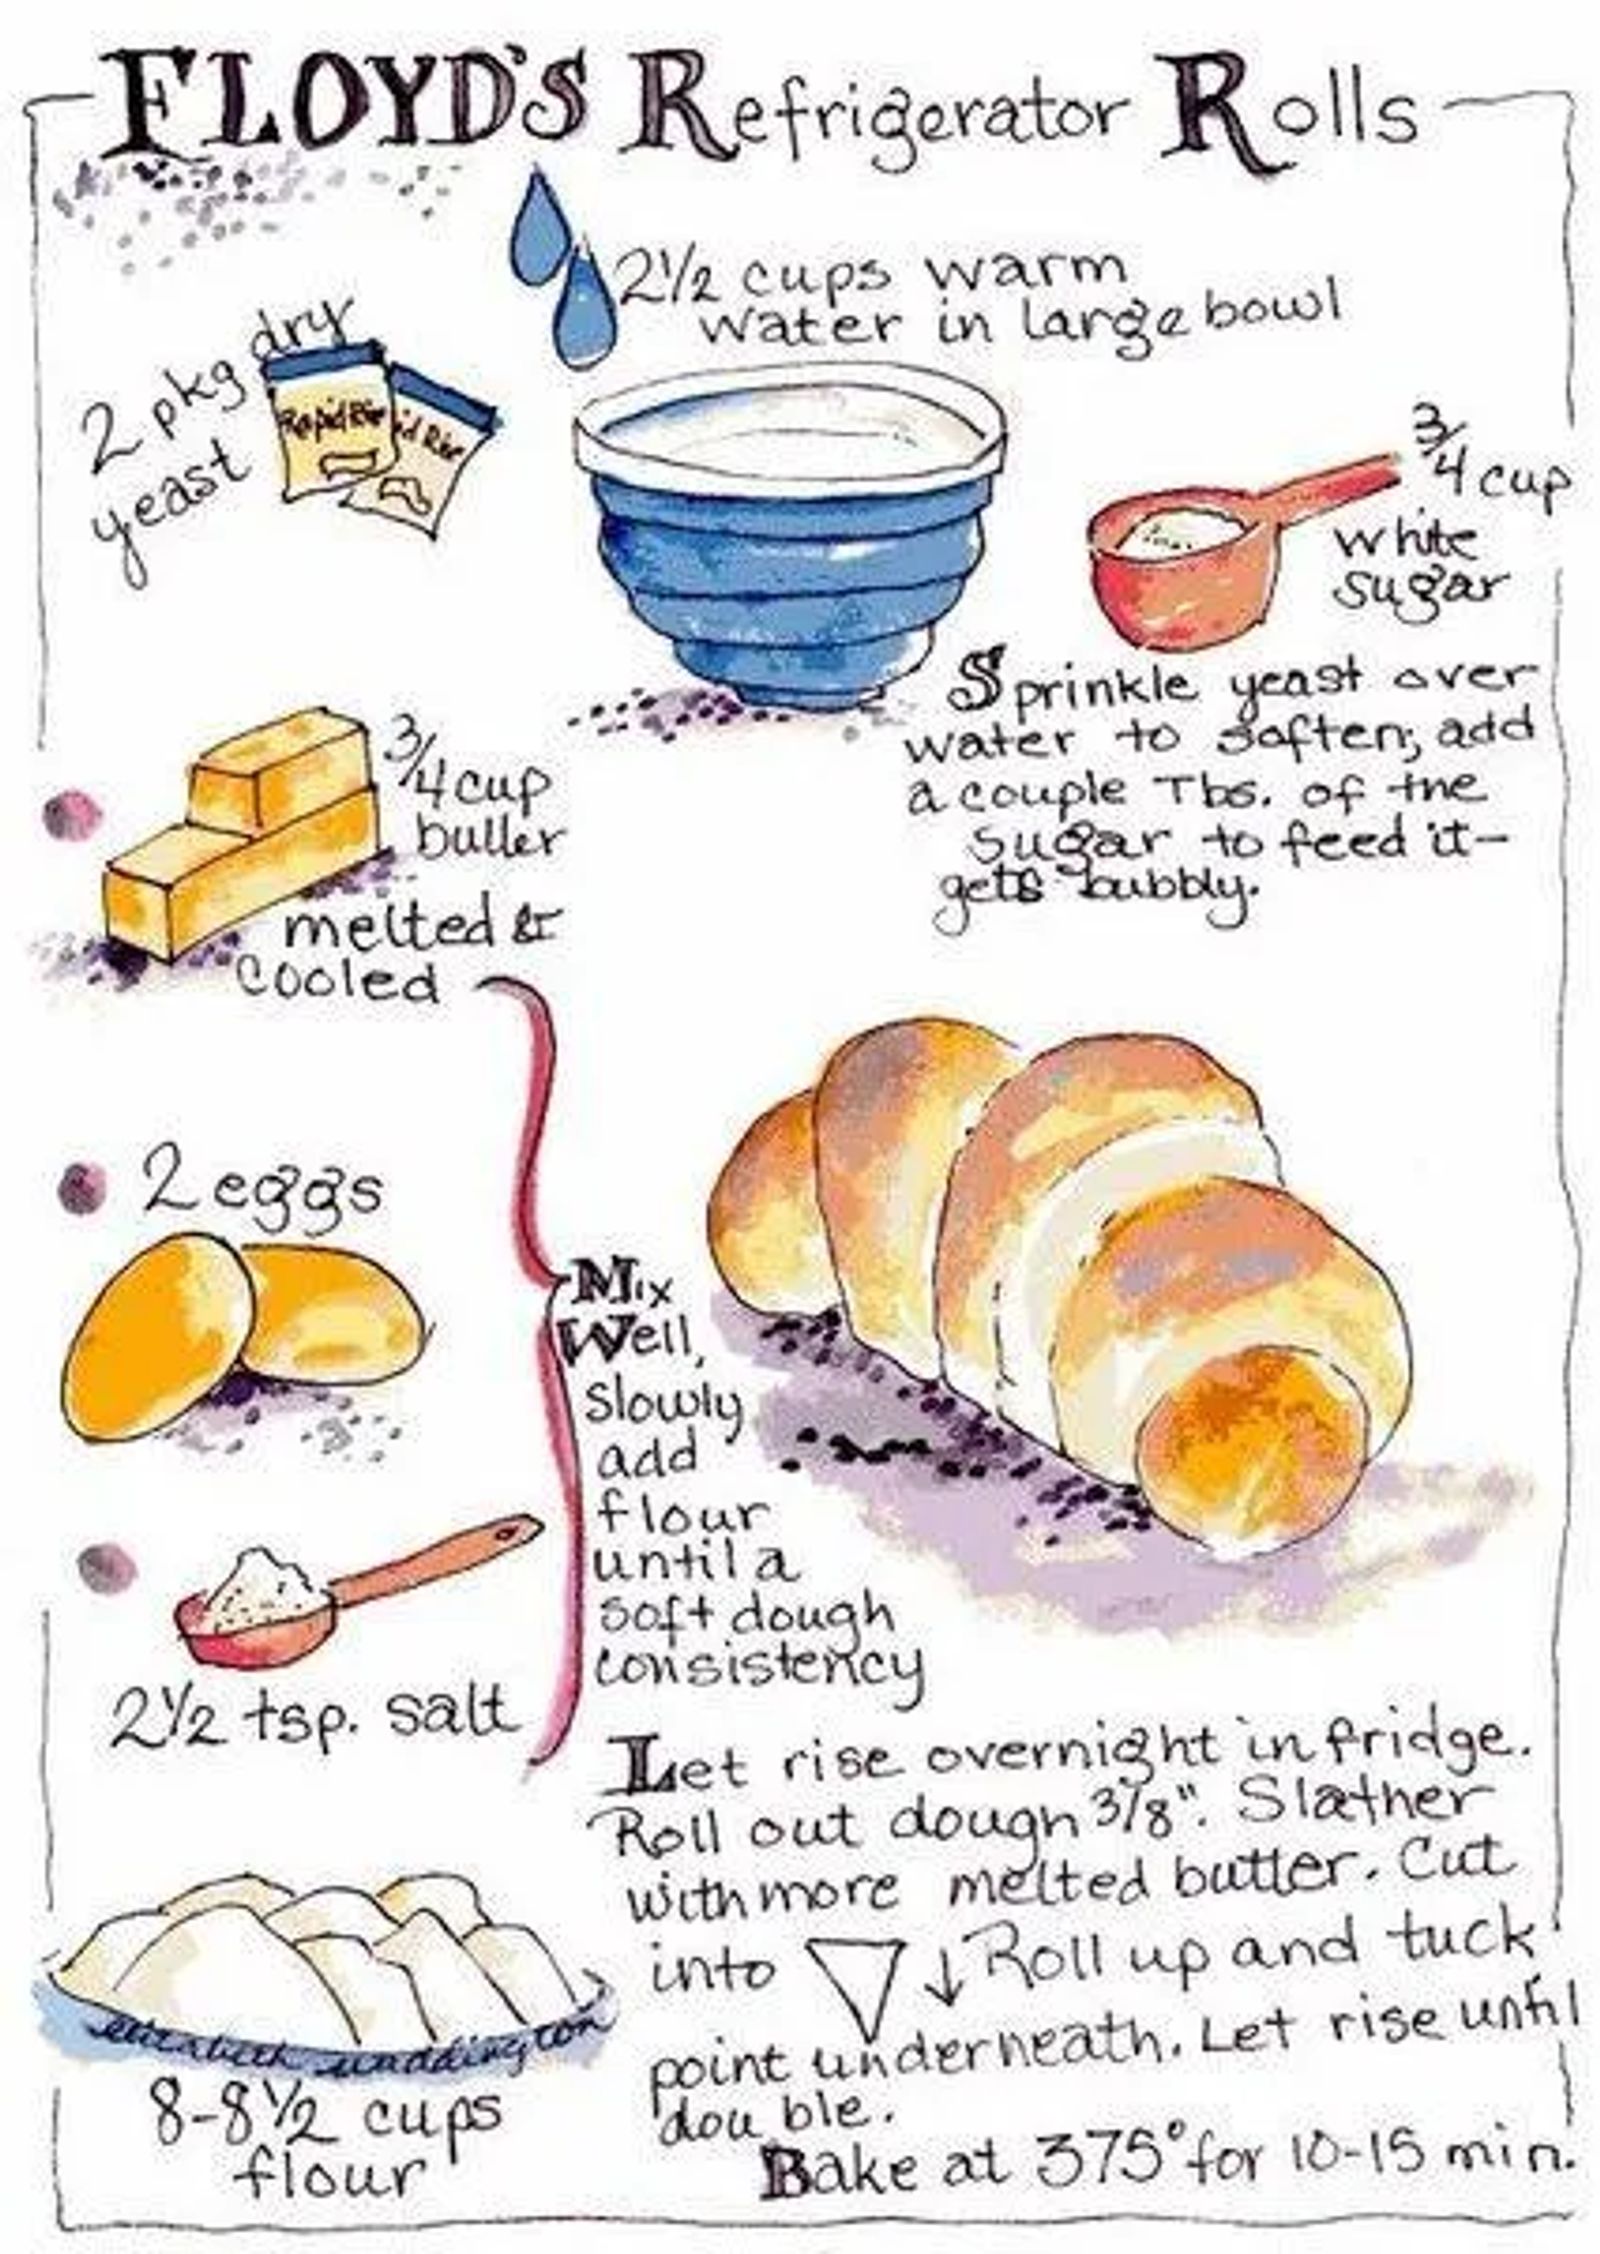 FLOYD'S Refrigerator Rolls
2½ cups warm
water in large bowl
2 pkg dry
yeast
Rapid Rise
id Rise
3/4 cup
white
sugar
Sprinkle yeast over
water to soften; add
a couple Tbs. of the
sugar to feed it-
gets bubbly.
3/4 cup
butter
melted &
cooled
2 eggs
2½ tsp. salt
Mix
Well,
slowly
add
flour
until a
soft dough
consistency
Let rise overnight in fridge.
Roll out dough 3/8". Slather
with more melted butter. Cut
into ▽ ↓ Roll up and tuck
point underneath. Let rise until
double.
Bake at 375° for 10-15 min.
elizabeth waddington
8-8½ cups
flour